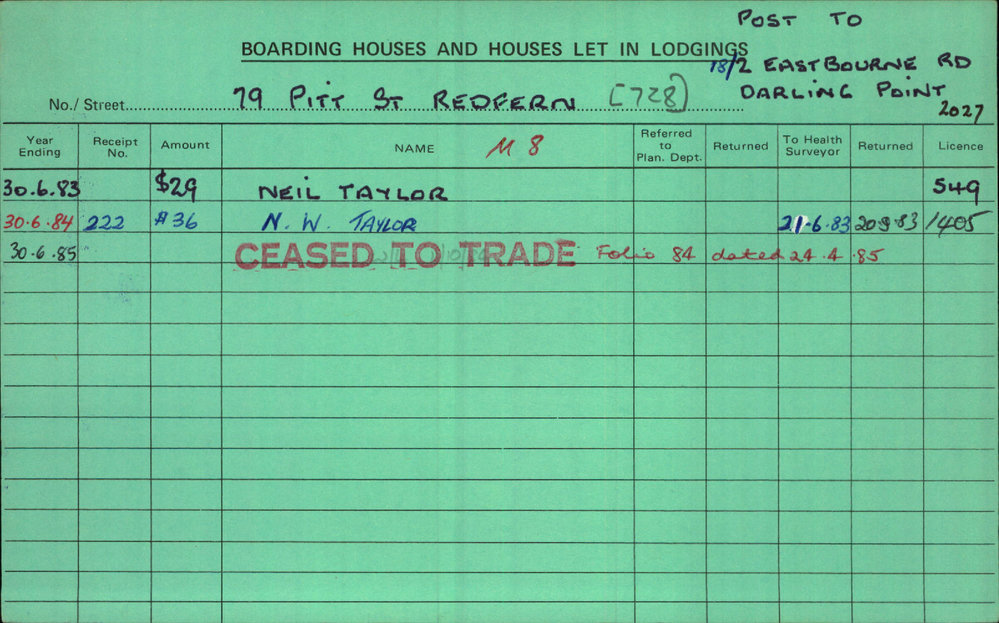 POST TO
BOARDING HOUSES AND HOUSES LET IN LODGINGS
18/2 EASTBOURNE RD
DARLING POINT
2027
No./ Street 79 PITT ST REDFERN [728]
Year Ending Receipt No. Amount NAME M 8 Referred to Plan. Dept. Returned To Health Surveyor Returned Licence
30.6.83 $29 NEIL TAYLOR 549
30.6.84 222 $36 N. W. TAYLOR 21.6.83 1405
30.6.85 CEASED TO TRADE Folio 84 dated 24.4.85